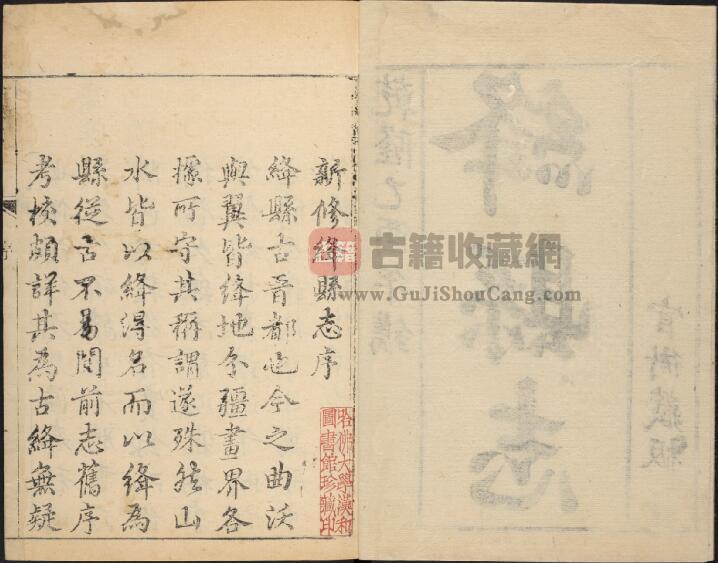 新修絳縣志序
絳縣古晉都也今之曲沃
與翼皆絳地分疆畫界各
據所守其稱謂遂殊然山
水皆以絳得名而以絳為
縣從古不易閱前志舊序
考核頗詳其為古絳無疑
哈佛大學漢和
圖書館珍藏印
古籍
古籍收藏網
www.GuJiShouCang.com
官衙藏板
絳縣志
乾隆